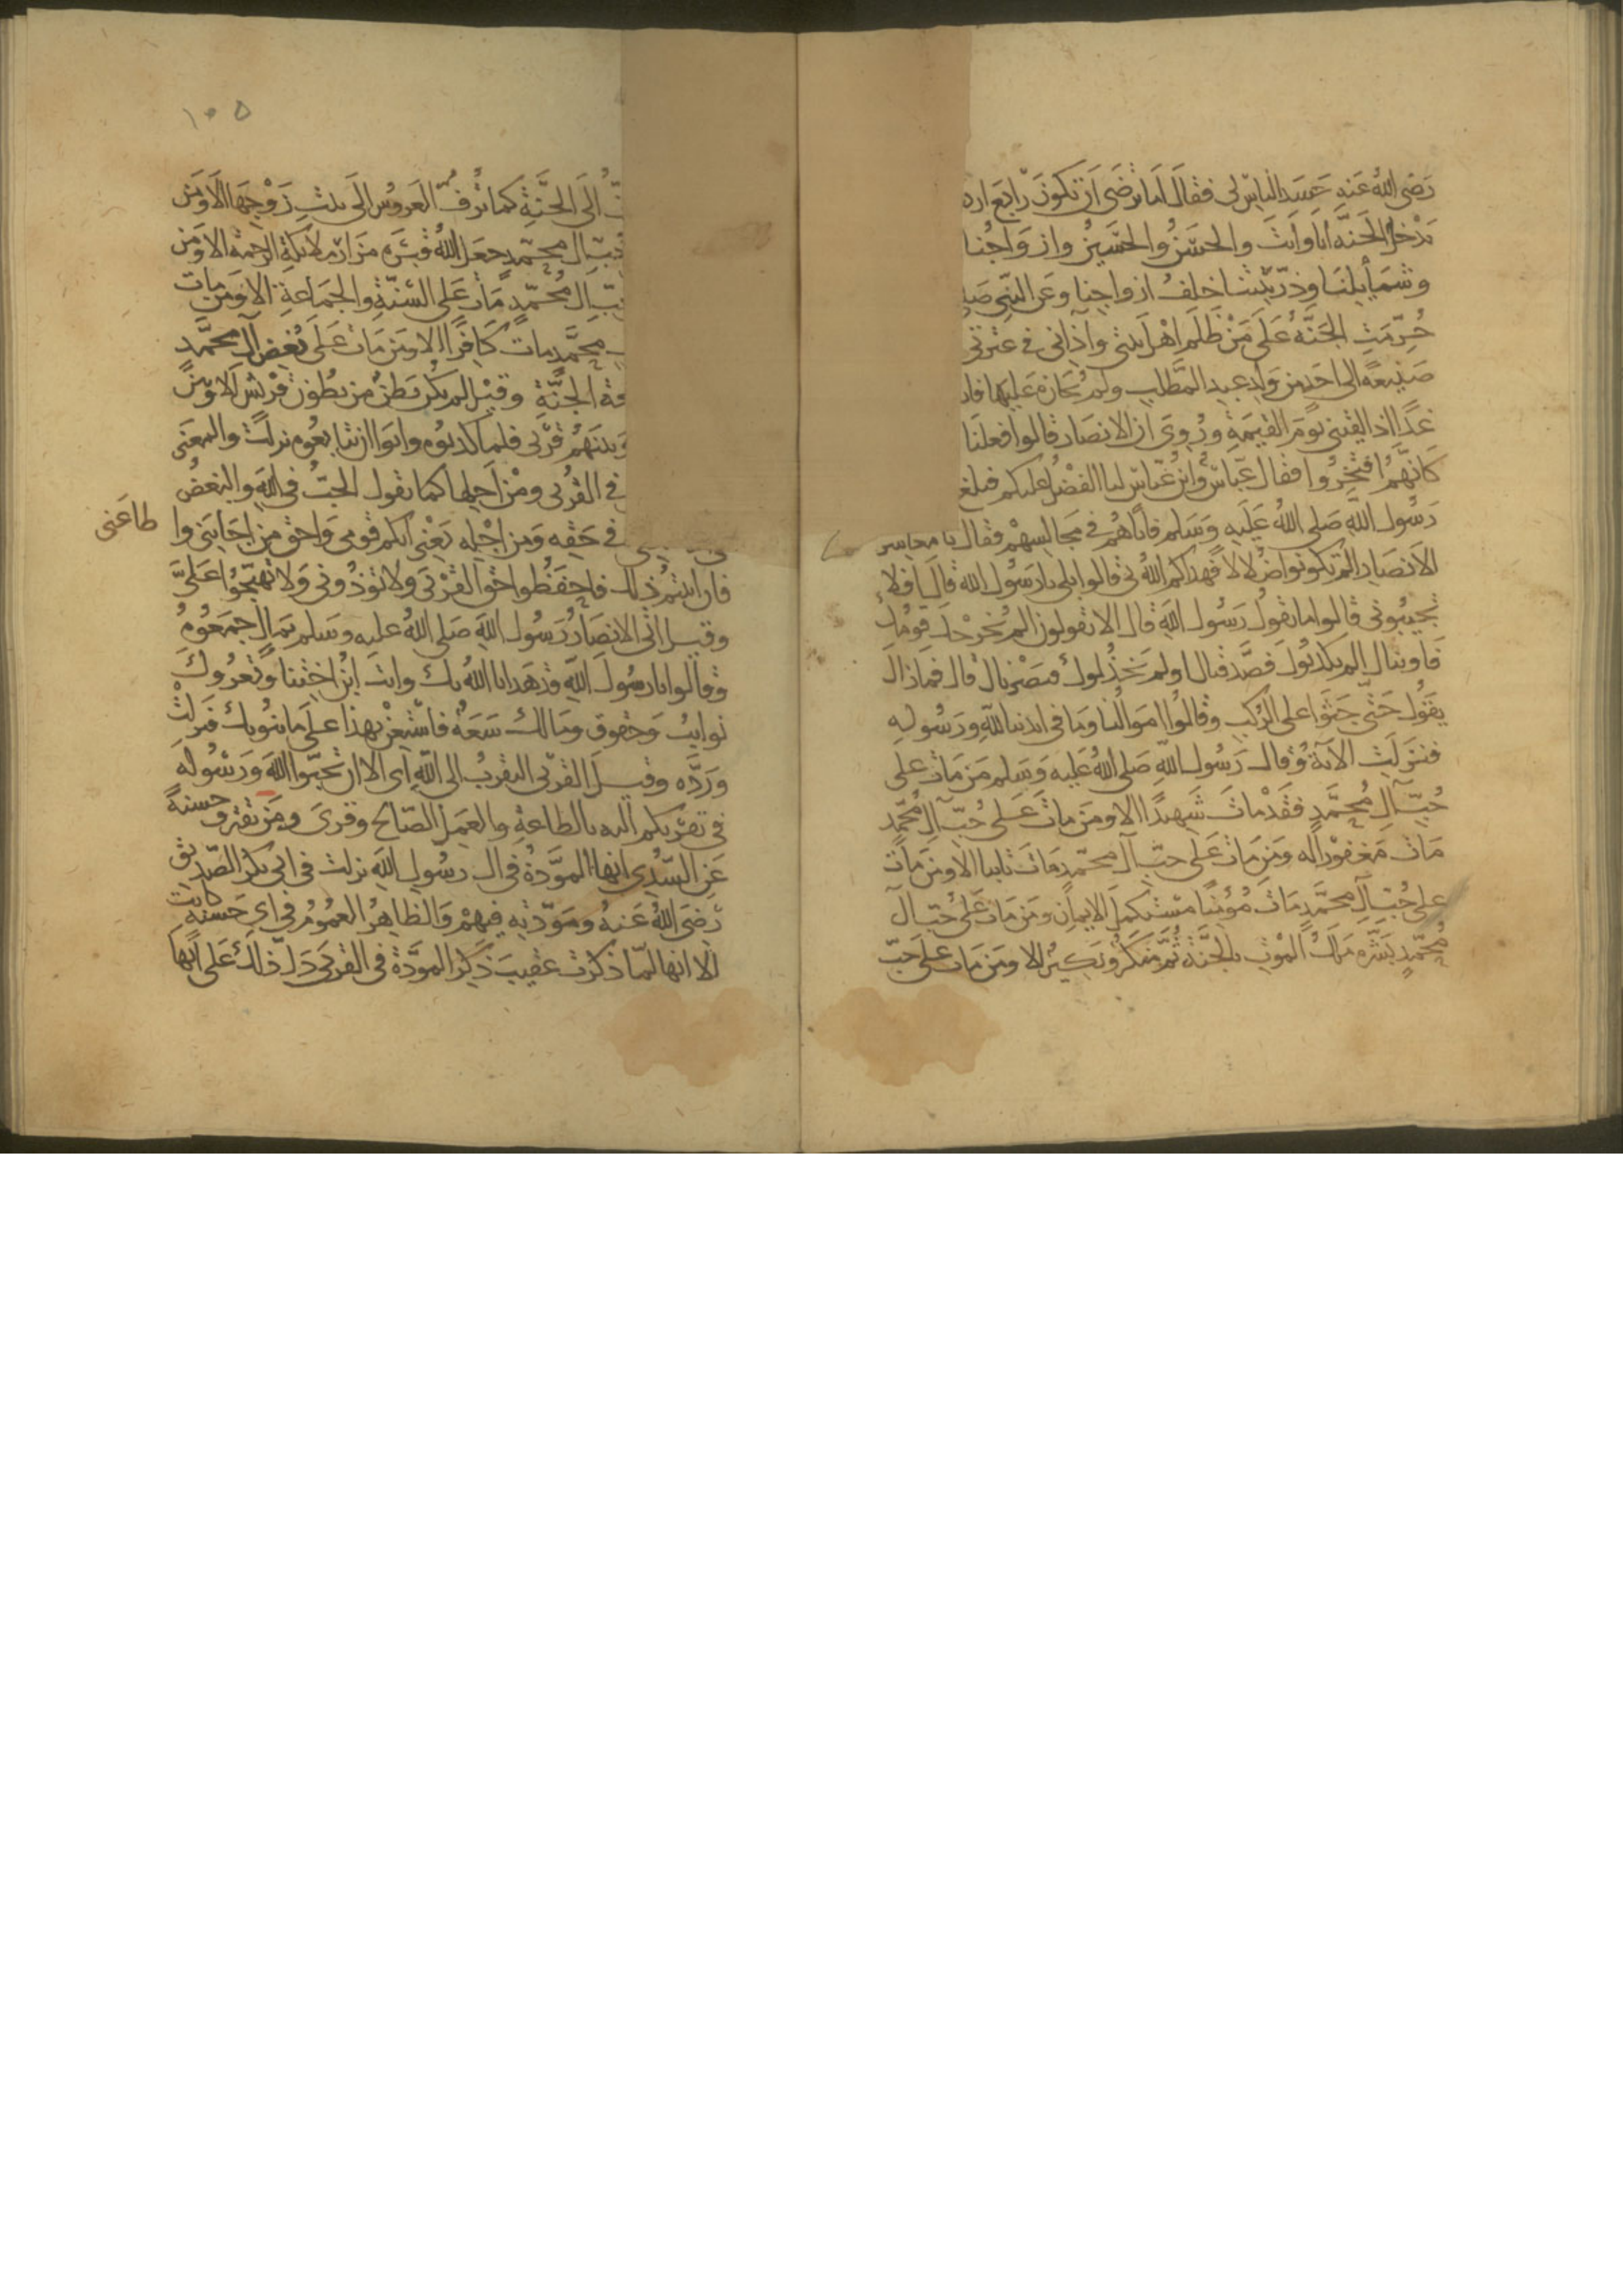 رضى الله عنه حسد الناس لى فقال اما ترضى ان تكون رابع ارد
يدخل الجنه انا وانت والحسن والحسين وازواجنا
وشمايلنا وذريتنا خلف ازواجنا وعن النبى
حرمت الجنه على من ظلم اهل بيتى واذانى فى عترتى
صنيعة الى احد من ولد عبد المطلب ولم يجازه عليها فانا
غدا اذا لقينى يوم القيمة وروى ان الانصار قالوا فعلنا
كانهم افتخروا فقال عباس وابن عباس لنا الفضل عليكم فبلغ
رسول الله صلى الله عليه وسلم فاتاهم فى مجالسهم فقال يا معاشر
الانصار الم تكونوا ضلالا فهداكم الله بى قالوا بلى يا رسول الله قال افلا
تجيبونى قالوا ما نقول رسول الله قال الا تقولون الم يخرجك قومك
فاويناك الم يكذبوك فصدقناك اولم يخذلوك فنصرناك قال فما زال
يقول حتى جثوا على الركب وقالوا اموالنا وما فى ايدينا لله ورسوله
فنزلت الاية وقال رسول الله صلى الله عليه وسلم من مات على
حب آل محمد فقد مات شهيدا الا ومن مات على حب آل محمد
مات مغفورا له ومن مات على حب آل محمد مات تايبا الا ومن مات
على حب آل محمد مات مؤمنا مستكمل الايمان ومن مات على حب آل
محمد بشره ملك الموت بالجنة ثم منكر ونكير الا ومن مات على حب
١٠٥
الى الجنة كما تزف العروس الى بيت زوجها الا ومن
حب ال محمد جعل الله قبره مزار ملائكة الرحمة الا ومن
حب ال محمد مات على السنة والجماعة الا ومن مات
محمد مات كافرا الا ومن مات على بغض آل محمد
الجنة وقيل لم يكن بطن من بطون قريش الا وبين
وبينهم قربى فلما كذبوه وابوا ان يبايعوه نزلت والمعنى
فى القربى ومن اجلها كما تقول الحب فى الله والبغض
فى حقه ومن اجله يعنى انكم قومى واحق من اجابنى وا
طاعنى
فان ابيتم ذلك فاحفظوا حق القربى ولا تؤذونى ولا تهيجوا على
وقيل اتى الانصار رسول الله صلى الله عليه وسلم بمال جمعوه
وقالوا يا رسول الله قد هدانا الله بك وانت ابن اختنا وتعروك
نوايب وحقوق ومالك سعة فاستعن بهذا على ما ينوبك فنزلت
ورده وقيل القربى التقرب الى الله اى الا ان تحبوا الله ورسوله
فى تقربكم اليه بالطاعة والعمل الصالح وقرى ومن يقترف حسنة
عن السدى انها المودة فى ال رسول الله نزلت فى ابى بكر الصديق
رضى الله عنه ومودته فيهم والظاهر العموم فى اى حسنة كانت
الا انها لما ذكرت عقيب ذكر المودة فى القربى دل ذلك على انها